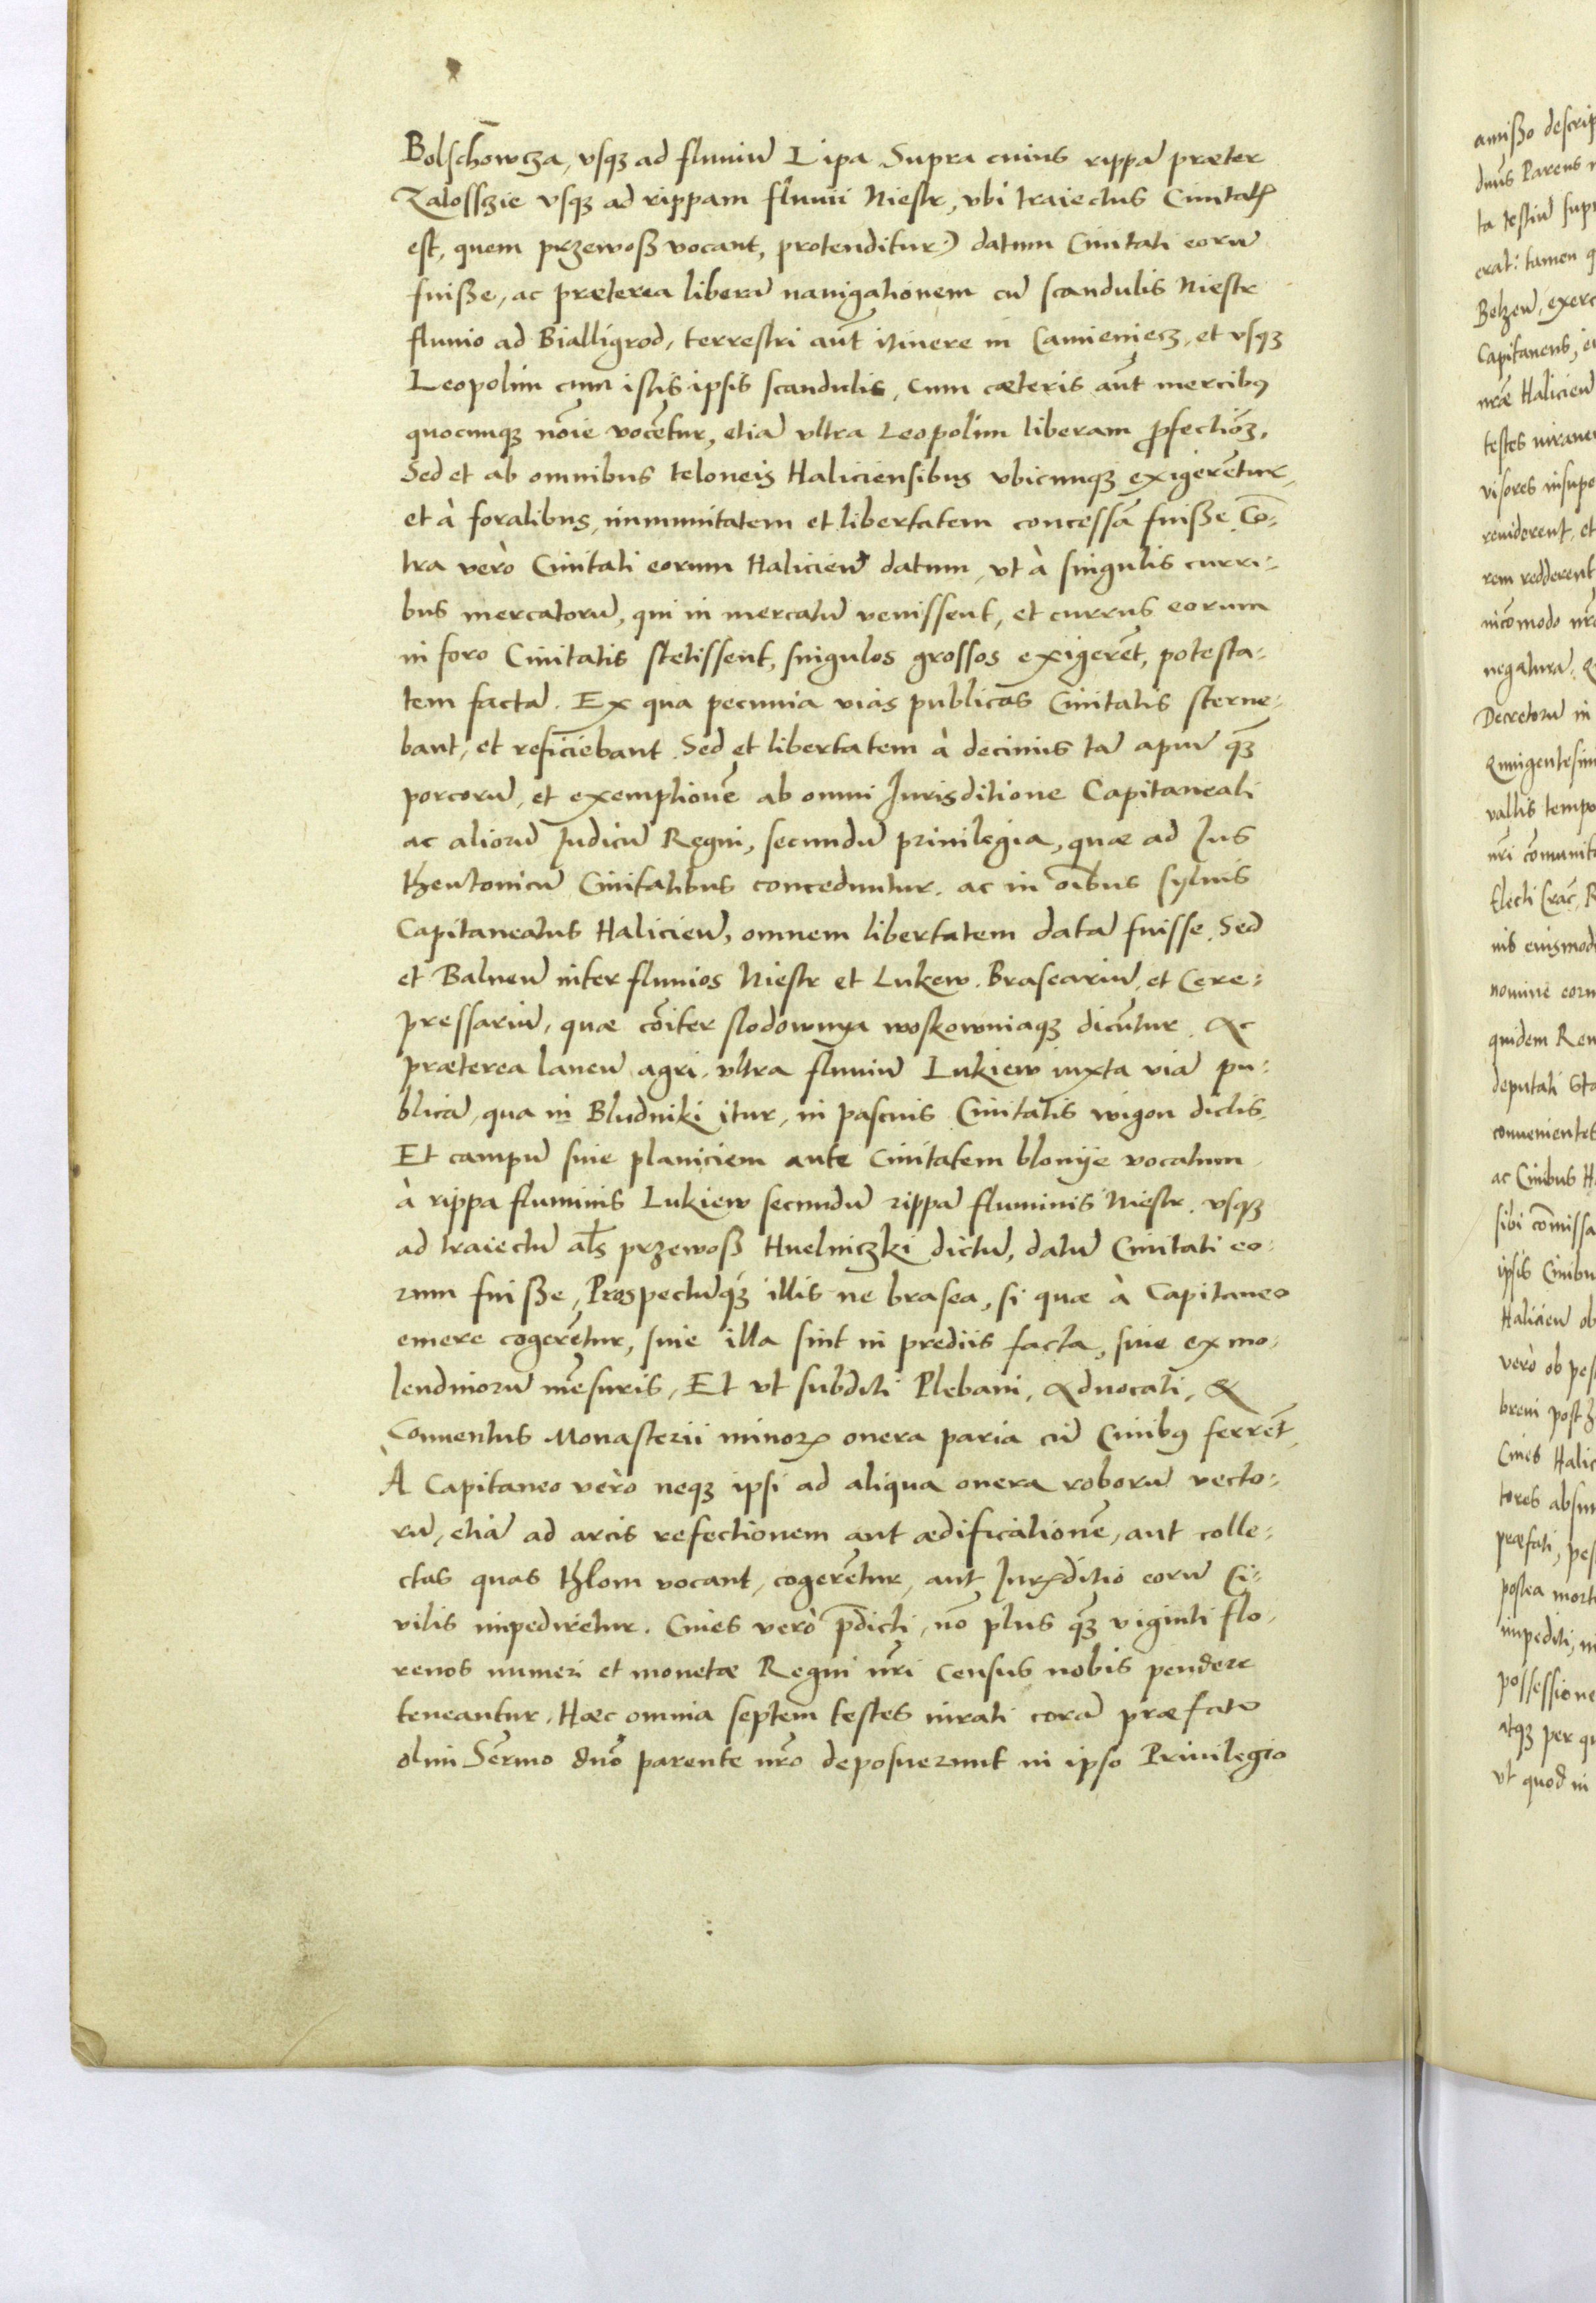 Bolschowcza, vsqꝫ ad fluuiū Lipa Supra cuius rippā præter
Zalossczie vsqꝫ ad rippam fluuii Niestr, vbi traiectus Ciuitatꝭ
est, quem przewoß vocant, protenditur) datum Ciuitati eorū
fuiße, ac præterea liberā nauigationem cū scandulis Niestr
fluuio ad Bialligrod, terrestri aūt itinere in Camieniecz, et vsqꝫ
Leopolim cum istis ipsis scandulis, Cum cæteris aūt mercibꝰ
quocunqꝫ nōie vocētur, etiā vltra Leopolim liberam ꝓfectiōꝫ,
Sed et ab omnibus teloneis Haliciensibus vbicunqꝫ exigerētur,
et à foralibus, immunitatem et libertatem concessā fuiße. Cō-
tra verò Ciuitati eorum Halicieñ datum, vt à singulis curri-
bus mercatorū, qui in mercatū venissent, et currus eorum
in foro Ciuitatis stetissent, singulos grossos exigerēt, potesta-
tem factā. Ex qua pecunia vias publicas Ciuitatis sterne-
bant, et reficiebant. Sed et libertatem à decimis tā apum qꝫ̄
porcorū, et exemptionē ab omni Iurisditione Capitaneali
ac aliorū Iudicū Regni, secundū priuilegia, quæ ad Ius
theutonicū Ciuitatibus conceduntur, ac in oībus syluis
Capitaneatus Halicieñ, omnem libertatem datā fuisse. Sed
et Balneū inter fluuios Niestr et Lukew. Brasearium, et Cere-
pressariū, quæ cōiter slodownya woskowniaqꝫ dicūtur. Ac
præterea laneū agri, vltra fluuiū Lukiew iuxta viā pu-
blicā, qua in Bludniki itur, in pascuis Ciuitatis wigon dictis.
Et campū siue planiciem ante Ciuitatem blonije vocatum
à rippa fluminis Lukiew secundū rippā fluminis Niestr, vsqꝫ
ad traiectū als przewoß Huelniczki dictū, datū Ciuitati eo-
rum fuiße, Prospectūqꝫ illis ne brasea, si quæ à Capitaneo
emere cogerētur, siue illa sint in prediis facta, siue ex mo-
lendinorū mēsuris, Et vt subditi Plebani, Aduocati, &
Conuentus Monasterii minorꝝ onera paria cū Ciuibꝰ ferrēt,
À Capitaneo verò neqꝫ ipsi ad aliqua onera roborū vecto-
rū, etiā ad arcis refectionem aut ædificationē, aut colle-
ctas quas thlom vocant, cogerētur, aut Iurꝭditio eorū Ci-
vilis impediretur. Ciues verò p̄dicti, nō plus qꝫ̄ viginti flo-
renos numeri et monetæ Regni nr̄i Census nobis pendere
teneantur. Hæc omnia septem testes iurati corā præfato
olim Serm̄o dn̄o parente nr̄o deposuerunt in ipso Priuilegio
amißo descrip
dn̄us Parens
ta testiū supr
erat: tamen q
Belzeñ, exerc
Capitaneus, e
nr̄æ Halicieñ
testes
visores insupe
reuiderent, et
rem redderent
incōmodo nr̄
negaturā. Q
Decretorū in
Quingentesim
vallis tempo
nr̄i cōmunit
Electi Crac̄, R
nis eiusmod
nomine eoru
quidem Reu
deputati
conuenientes
ac Ciuibus H
sibi cōmissa
ipsis Ciuibu
Halicieñ ob
verò ob pes
breui post
Ciues Halic
tores absun
præfati, pes
postea mort
impediti, ni
possessione
atqꝫ per qu
vt quod in